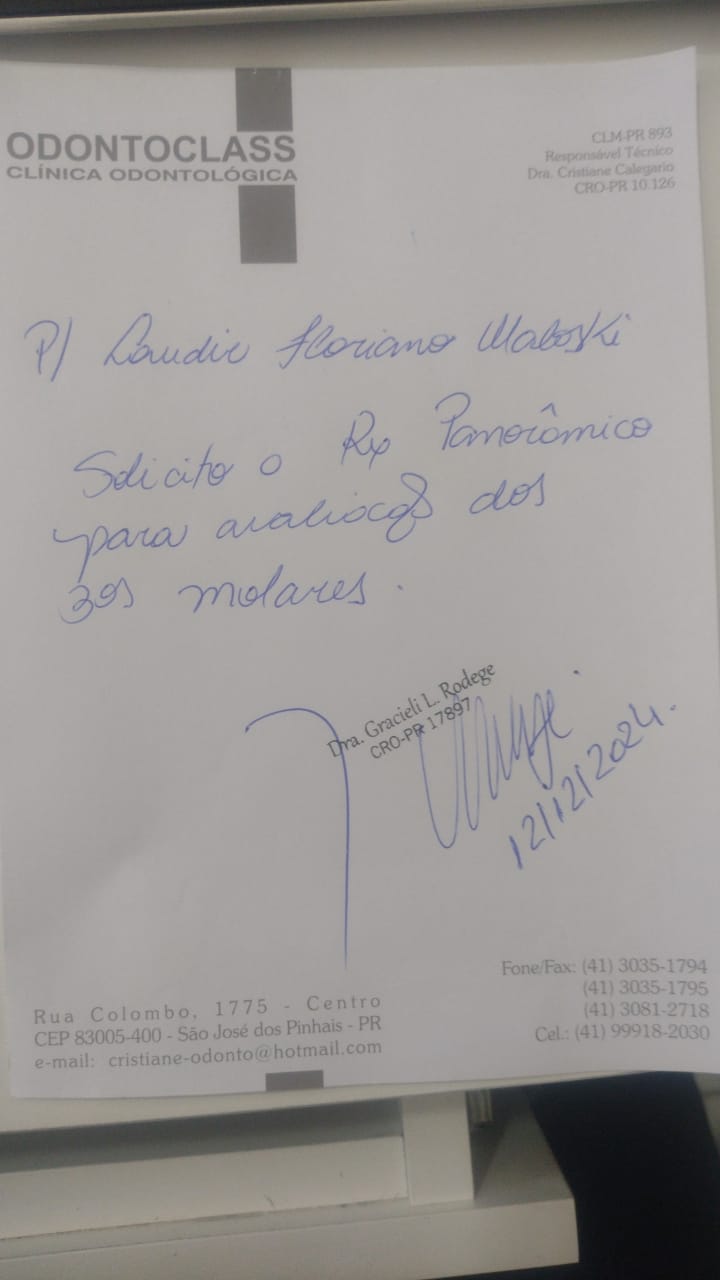 ODONTOCLASS
CLÍNICA ODONTOLÓGICA
CLM-PR 893
Responsável Técnico
Dra. Cristiane Calegario
CRO-PR 10.126
P/ Claudir Floriano Maloski
Solicito o Rx Panorâmico
para avaliação dos
3os molares.
Dra. Gracieli L. Rodege
CRO-PR 17897
12/12/2024.
Rua Colombo, 1775 - Centro
CEP 83005-400 - São José dos Pinhais - PR
e-mail: cristiane-odonto@hotmail.com
Fone/Fax: (41) 3035-1794
(41) 3035-1795
(41) 3081-2718
Cel.: (41) 99918-2030